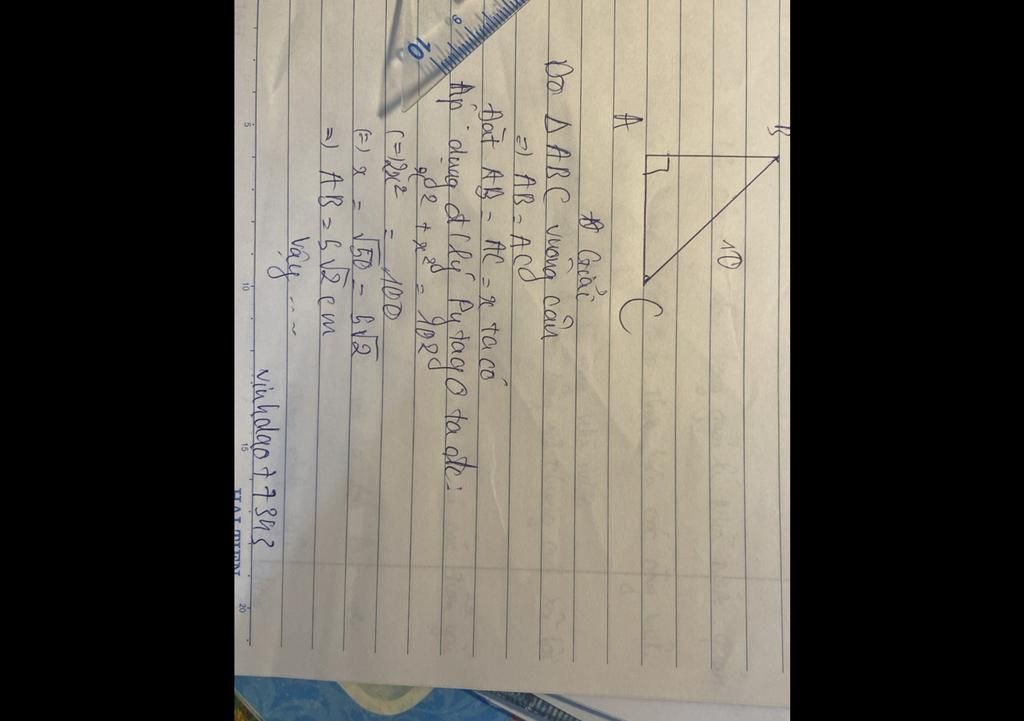 B
10
A
C
Giải
Do Δ ABC vuông cân
=) AB = AC
Đặt AB = AC = x ta có
Áp dụng đ/lý Pytago ta đc:
x² + x² = 10²
(=) 2x² = 100
(=) x = √50 = 5√2
=) AB = 5√2 cm
Vậy ....
vinhdao77343
5 10 15 20
10